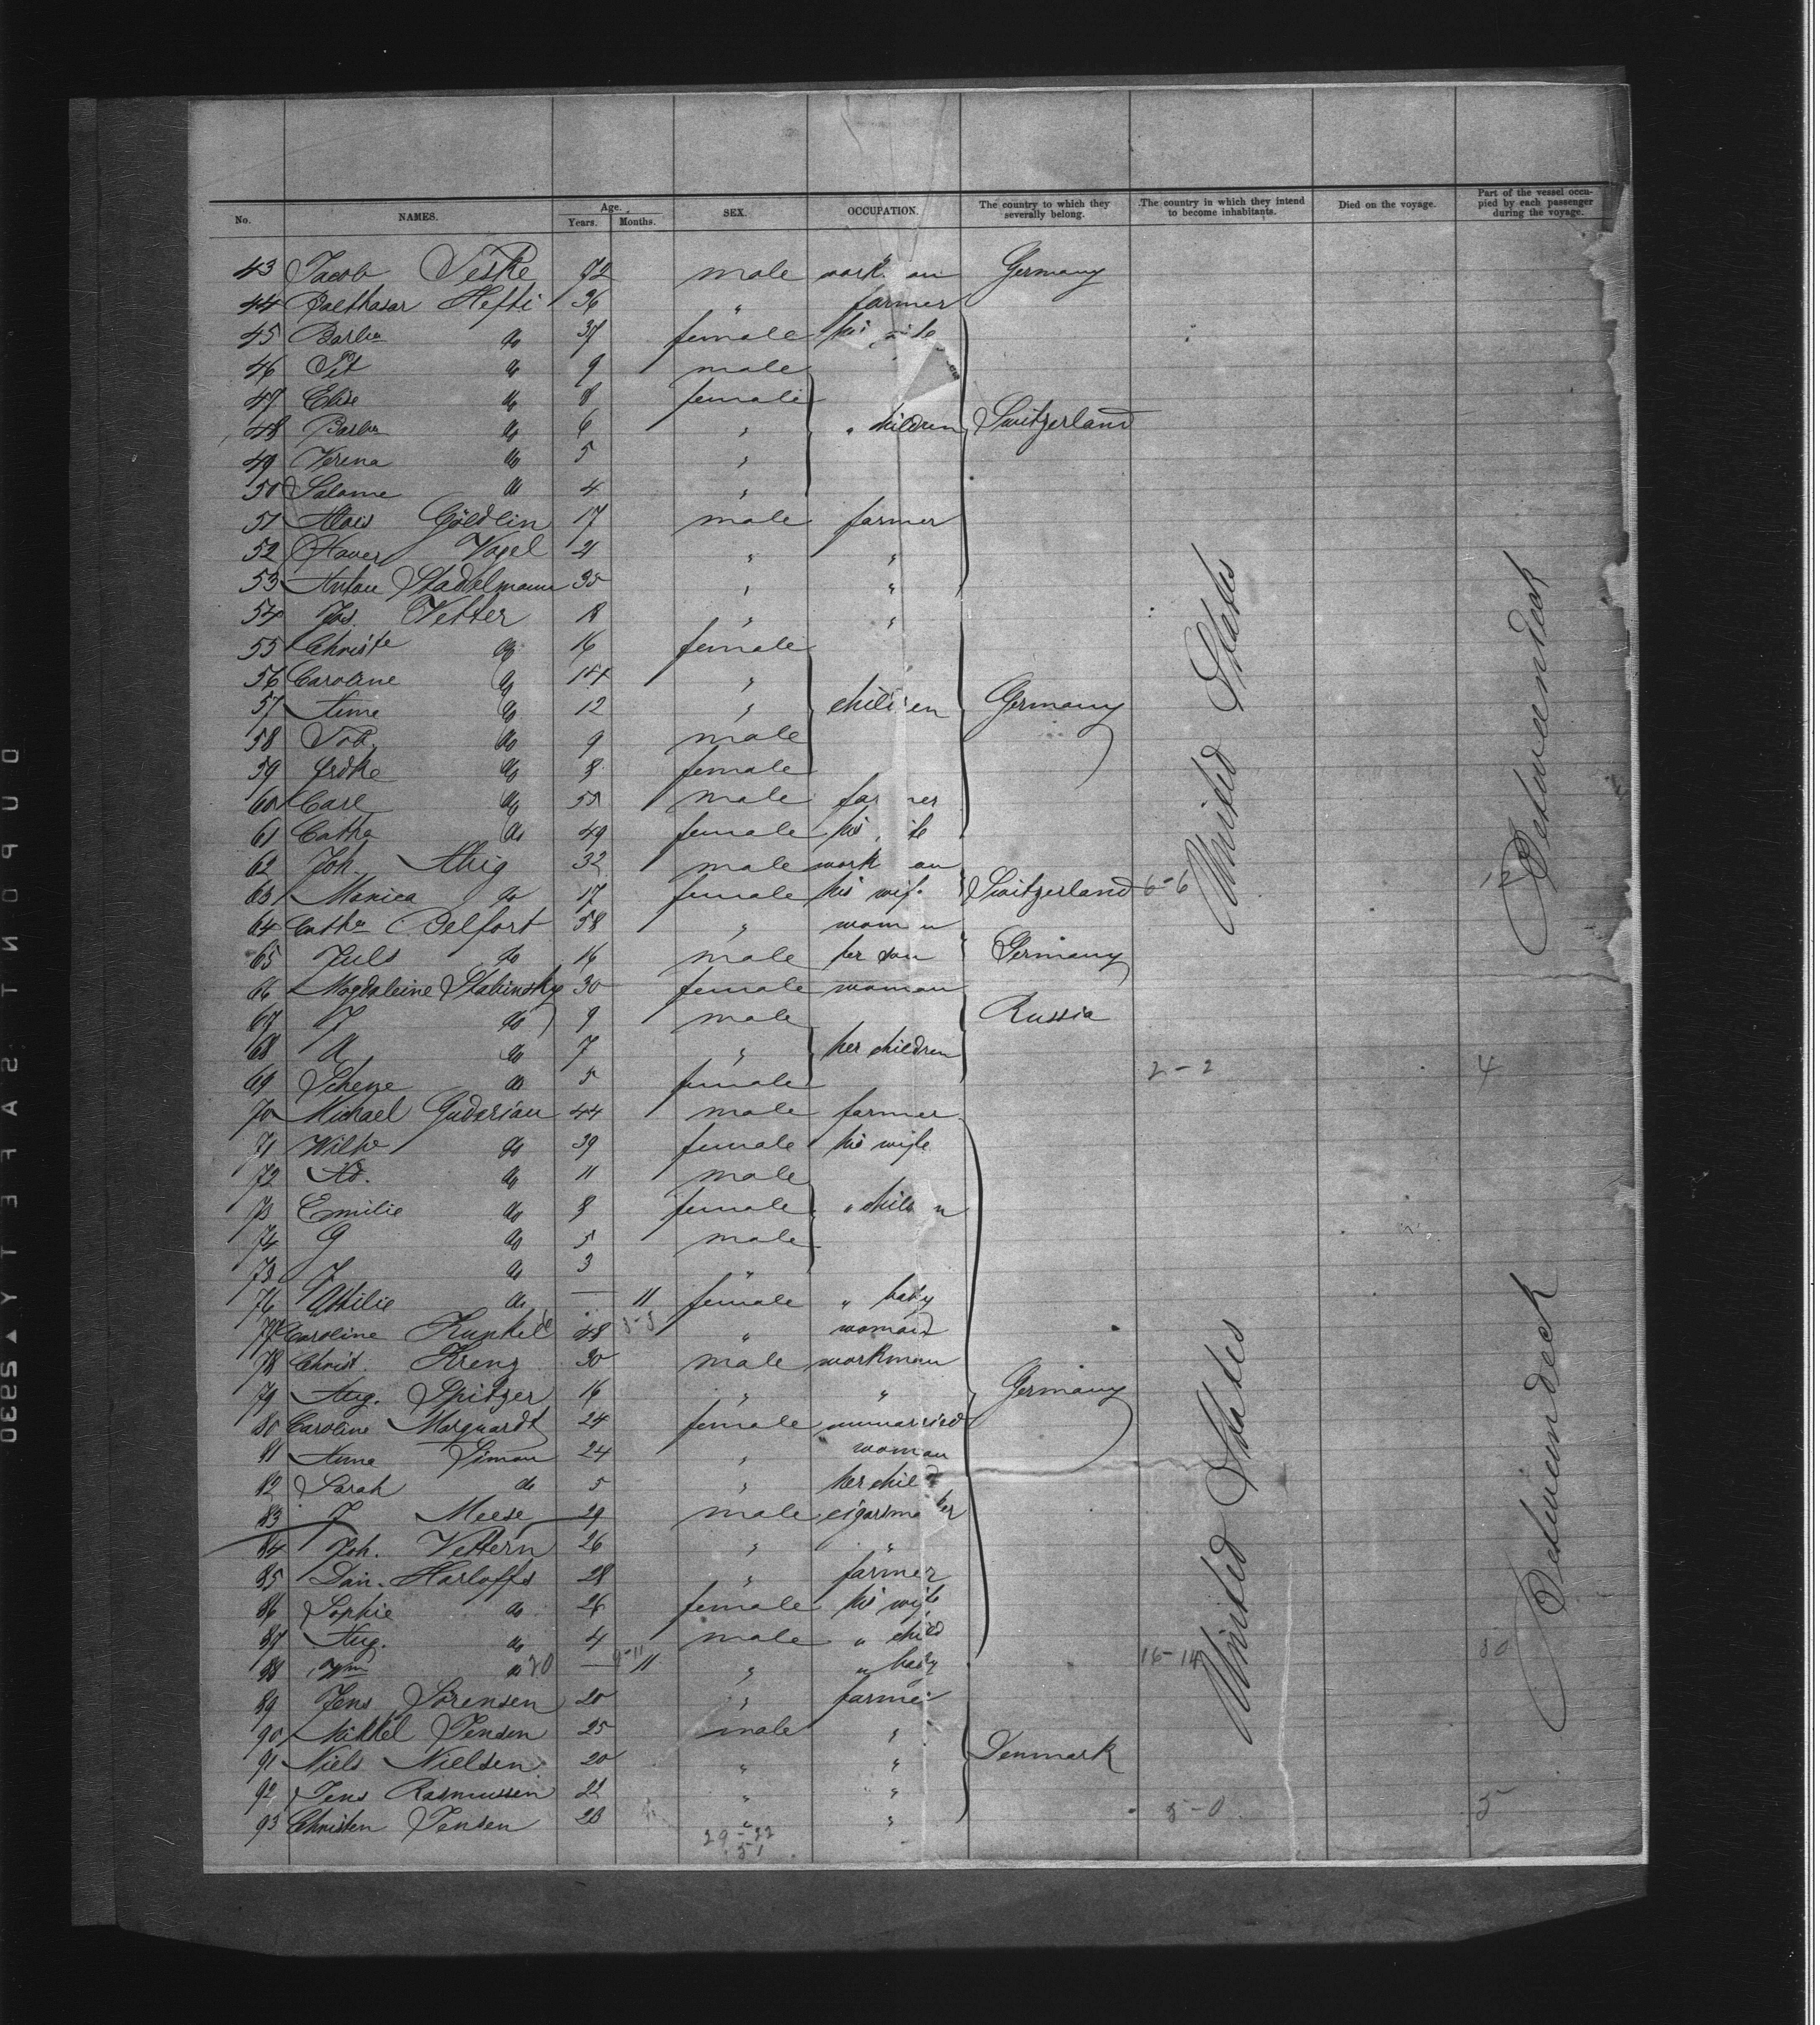 No. NAMES. Age. Years. Months. SEX. OCCUPATION. The country to which they severally belong. The country in which they intend to become inhabitants. Died on the voyage. Part of the vessel occupied by each passenger during the voyage.
43 Jacob Teske 72 male work an Germany
44 Balthasar Hefti 36 " farmer
45 Barba do 37 female his wife
46 do 9 male
47 Elise do 8 female
48 Barba do 6 " " children Switzerland
49 Verena do 5 "
50 Salome do 4 "
51 Alois Göldlin 17 male farmer
52 Xaver Vogel 21 " "
53 Anton Stadelmann 35 " "
54 Jos. Vetter 18 " "
55 Christe do 16 female
56 Caroline do 14 "
57 Anna do 12 " children Germany
58 Joh. do 9 male
59 do 8 female
60 Carl do 55 male farmer
61 Catha do 49 female his wife
62 Joh. 32 male work an
63 Monica do 17 female his wife Switzerland 6-6 12
64 Catha Belfort 58 " woman
65 Juls do 16 male her son Germany
66 Magdaleine Stabinsky 30 female woman
67 J do 9 male Russia
68 A do 7 " her children
69 do 5 female 2-2 4
70 Michael Guderian 44 male farmer
71 Wilhe do 39 female his wife
72 Ad. do 11 male
73 Emilie do 8 female " children
74 G do 5 male
75 J do 3 "
76 Ottilie do — 11 female " baby
77 Caroline Kunkel 48 " woman
78 Christ. Krenz 30 male workman
79 Aug. Spitzer 16 " " Germany
80 Caroline Marquardt 24 female unmarried
81 Anna Simon 24 " woman
82 Sarah do 5 " her child
83 J Meese 29 male cigarmaker
84 Joh. Vettern 26 " "
85 Dan. Harloffs 28 " farmer
86 Sophie do 26 female his wife
87 Aug. do 4 male " child
88 Wm do 20 — 11 " " baby 16-14
89 Jens Sörensen 20 " farmer
90 Mikkel Jensen 25 male "
91 Niels Nielsen 20 " " Denmark
92 Jens Rasmussen 22 " "
93 Christen Jensen 23 " " 5-0 5
29-22
51
United States
Betweendeck
United States
Betweendeck